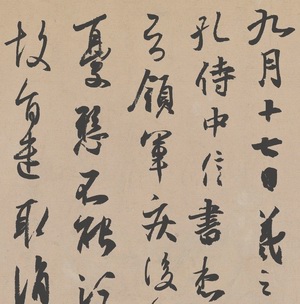 九月十七日羲之
孔侍中信書想
知領軍疾後
憂懸不能須
故旨遣取消